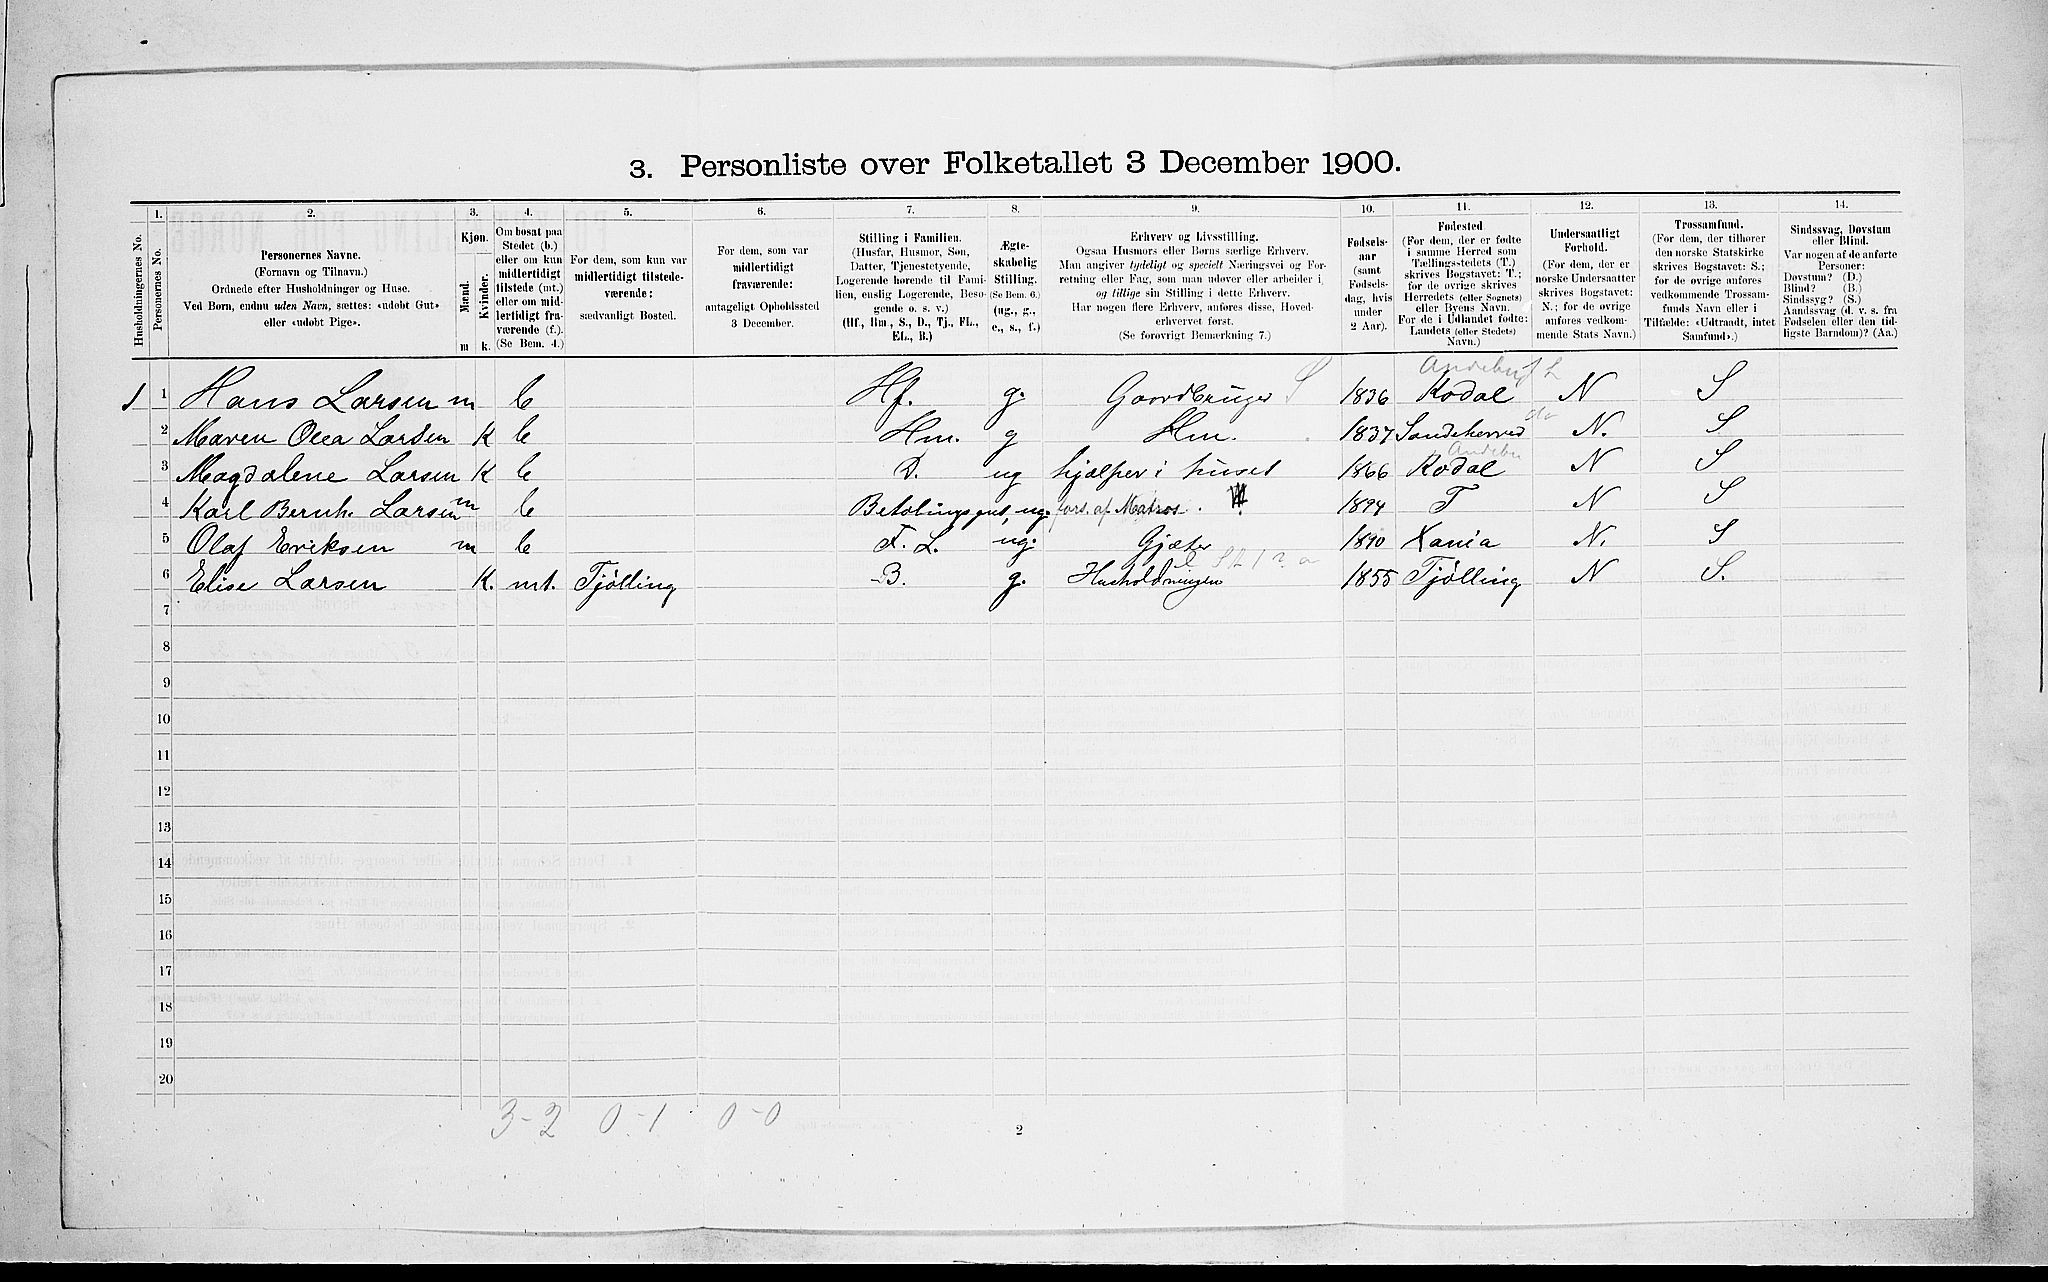 3. Personliste over Folketallet 3 December 1900.
1. 2. 3. 4. 5. 6. 7. 8. 9. 10. 11. 12. 13. 14.
Husholdningernes No.
Personernes No.
Personernes Navne.
(Fornavn og Tilnavn.)
Ordnede efter Husholdninger og Huse.
Ved Børn, endnu uden Navn, sættes: «udøbt Gut»
eller «udøbt Pige».
Kjøn.
Mænd.
Kvinder.
m k.
Om bosat paa
Stedet (b.)
eller om kun
midlertidigt
tilstede (mt.)
eller om mid-
lertidigt fra-
værende (f.).
(Se Bem. 4.)
For dem, som kun var
midlertidigt tilstede-
værende:
sædvanligt Bosted.
For dem, som var
midlertidigt
fraværende:
antageligt Opholdssted
3 December.
Stilling i Familien.
(Husfar, Husmor, Søn,
Datter, Tjenestetyende,
Logerende hørende til Fami-
lien, enslig Logerende, Besø-
gende o. s. v.)
(Hf., Hm., S., D., Tj., FL.,
EL., B.)
Ægte-
skabelig
Stilling.
(Se Bem. 6.)
(ug., g.,
e., s., f.)
Erhverv og Livsstilling.
Ogsaa Husmors eller Børns særlige Erhverv.
Man angiver tydeligt og specielt Næringsvei og For-
retning eller Fag, som man udøver eller arbeider i,
og tillige sin Stilling i dette Erhverv.
Har nogen flere Erhverv, anføres disse, Hoved-
erhvervet først.
(Se forøvrigt Bemærkning 7.)
Fødsels-
aar
(samt
Fødsels-
dag, hvis
under
2 Aar).
Fødested
(For dem, der er fødte
i samme Herred som
Tællingsstedets (T.)
skrives Bogstavet: T.;
for de øvrige skrives
Herredets (eller Sognets)
eller Byens Navn.
For de i Udlandet fødte:
Landets (eller Stedets)
Navn.)
Undersaatligt
Forhold.
(For dem, der er
norske Undersaatter
skrives Bogstavet:
N.; for de øvrige
anføres vedkom-
mende Stats Navn.)
Trossamfund.
(For dem, der tilhører
den norske Statskirke
skrives Bogstavet: S.;
for de øvrige anføres
vedkommende Trossam-
funds Navn eller i
Tilfælde: «Udtraadt, intet
Samfund».)
Sindssvag, Døvstum
eller Blind.
Var nogen af de anførte
Personer:
Døvstum? (D.)
Blind? (B.)
Sindssyg? (S.)
Aandssvag (d. v. s. fra
Fødselen eller den tid-
ligste Barndom)? (Aa.)
Andebu
1 1 Hans Larsen m b Hf. g. Gaardbruger S 1836 Kodal N S
2 Maren Olea Larsen K b Hm. g Hm. 1837 Sandeherred do N. S
Andebu
3 Magdalene Larsen K b D. ug hjælper i huset 1866 Kodal N S
4 Karl Bernh. Larsen m b Betalingsgut, ug. fors. af Matros 1894 T N S
5 Olaf Eriksen m b F. L. ug. Gjæter 1890 Xania N. S
6 Elise Larsen K. mt. Tjölling B. g. Husholdningen 1855 Tjölling N S.
7
8
9
10
11
12
13
14
15
16
17
18
19
20
3-2 0-1 0-0
2